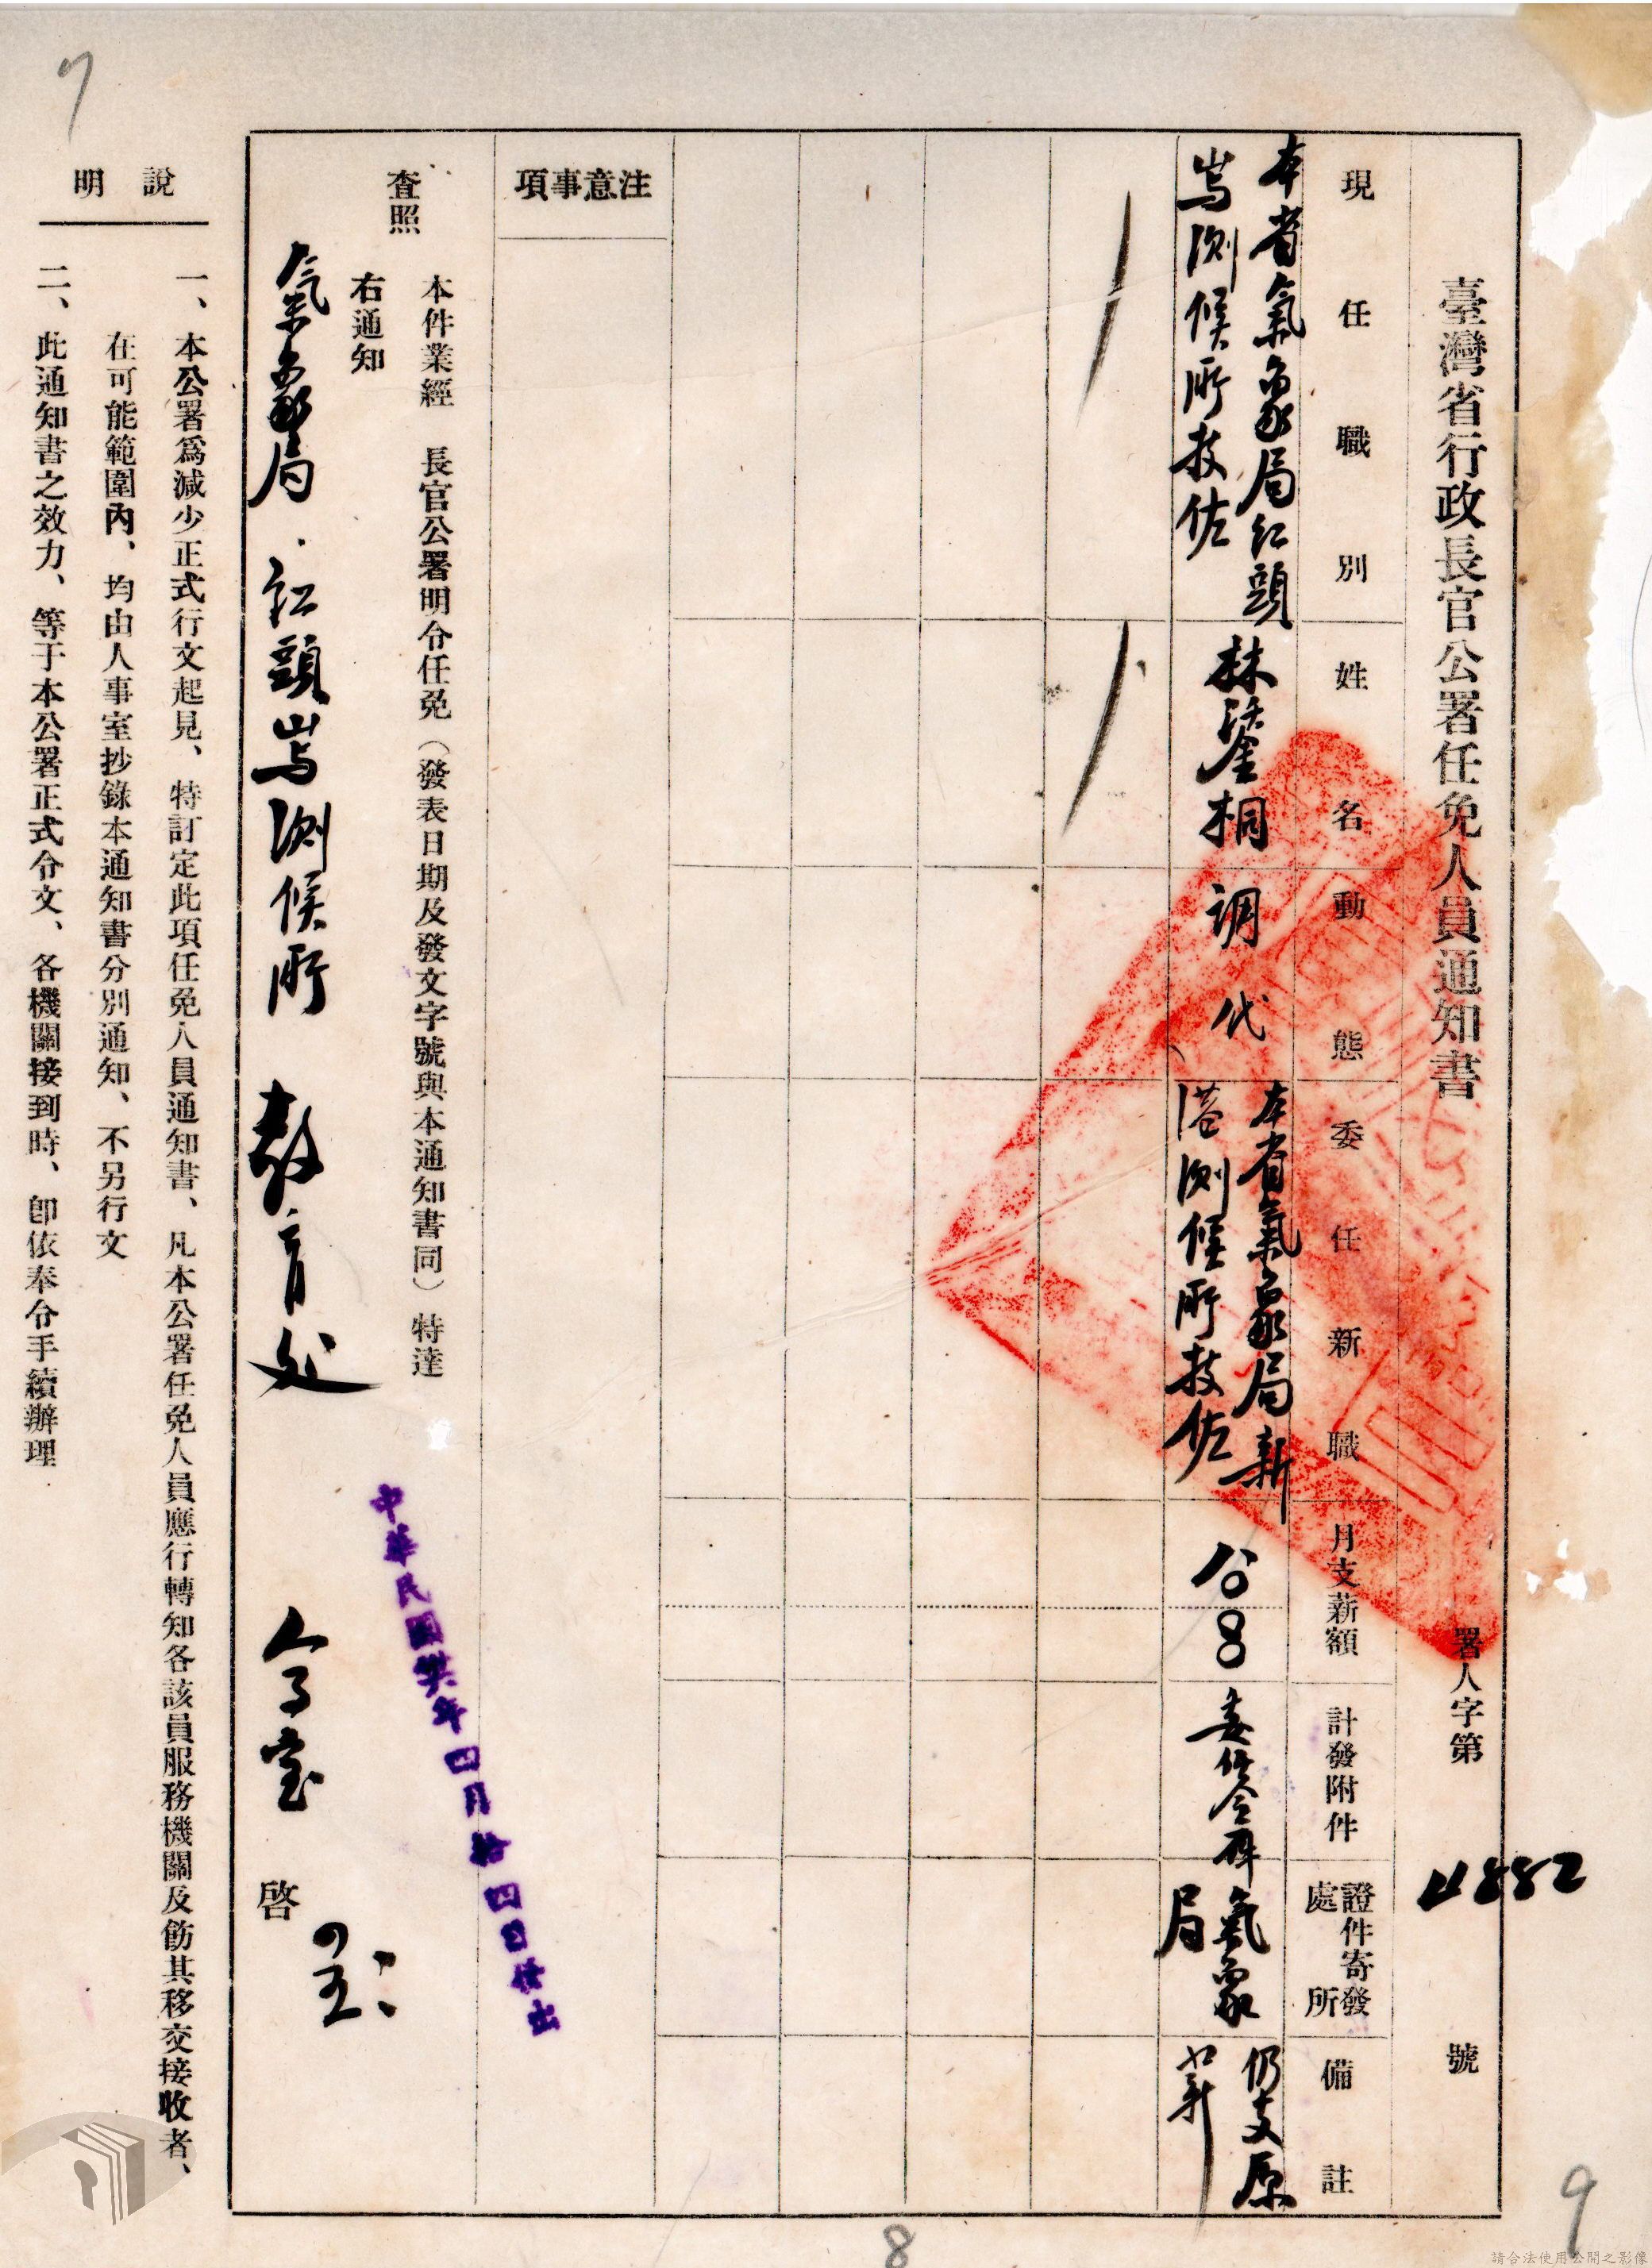 臺灣省行政長官公署任免人員通知書
署人字第 4882 號
現任職別
姓名
動態
委任新職
月支薪額
計發附件
證件寄發處所
備註
本省氣象局紅頭
嶼測候所技佐
林鎏桐
調代
本省氣象局新
港測候所技佐
80
委任令一件
氣象局
仍支原
薪
注意事項
本件業經 長官公署明令任免（發表日期及發文字號與本通知書同）特達
查照
右通知
氣象局 紅頭嶼測候所 教育处
啓
中華民國卅六年四月拾四日發出
說明
一、本公署爲減少正式行文起見、特訂定此項任免人員通知書、凡本公署任免人員應行轉知各該員服務機關及飭其移交接收者、
在可能範圍內、均由人事室抄錄本通知書分別通知、不另行文
二、此通知書之效力、等于本公署正式令文、各機關接到時、卽依奉令手續辦理
7
8
9
請合法使用公開之影像